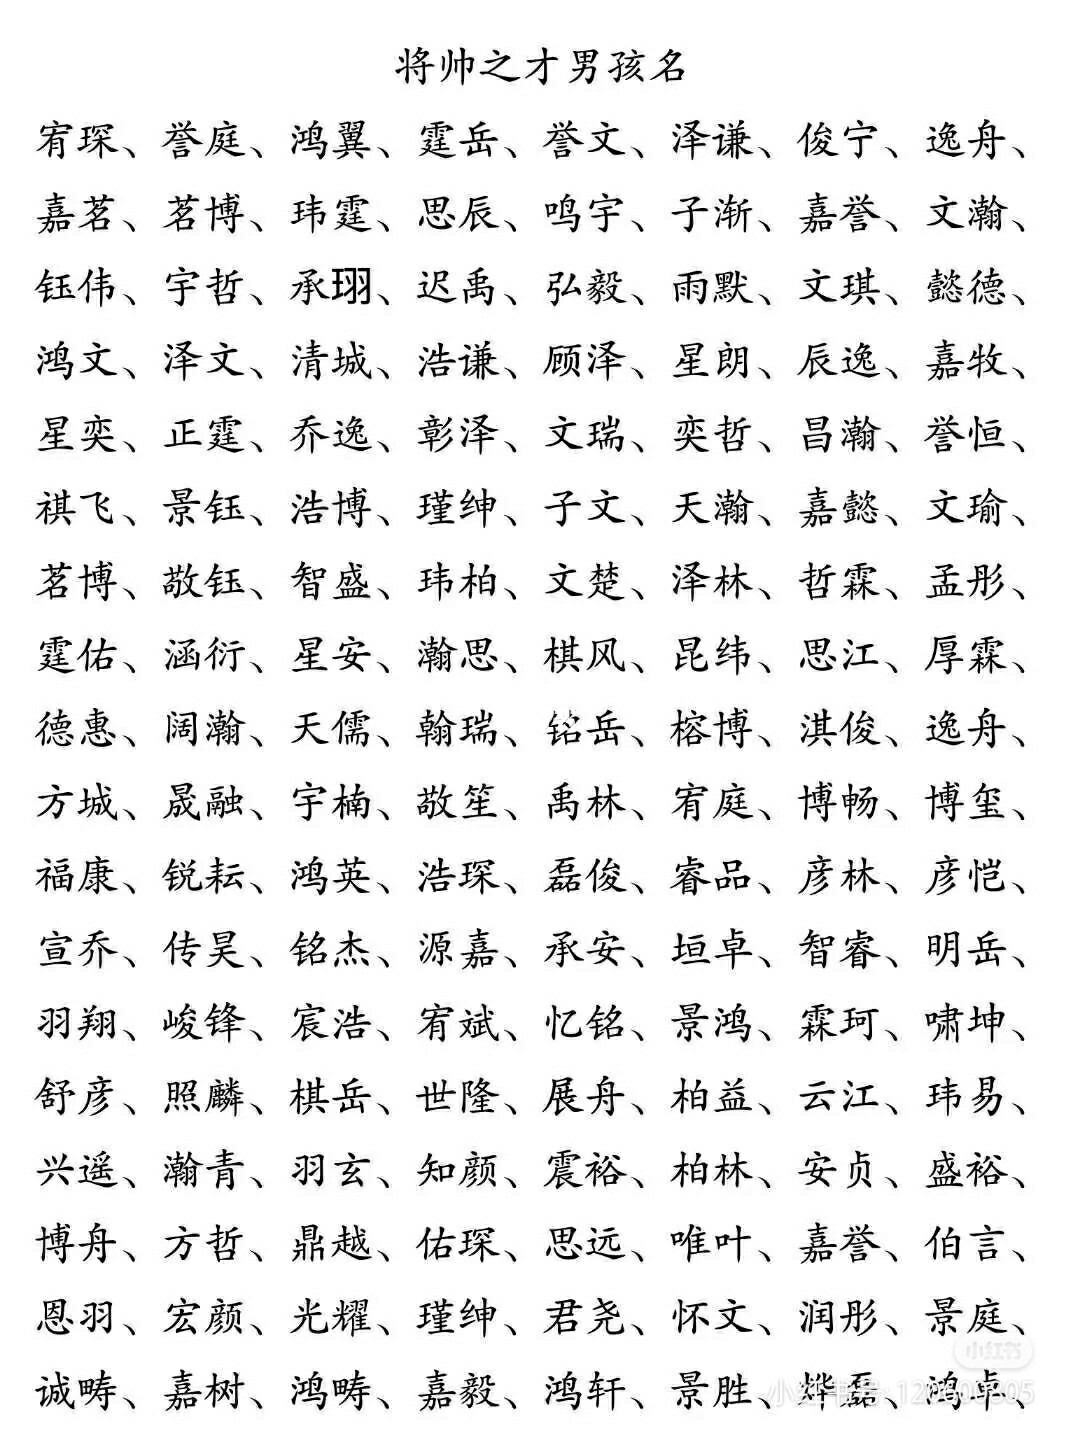 将帅之才男孩名
宥琛、誉庭、鸿翼、霆岳、誉文、泽谦、俊宁、逸舟、
嘉茗、茗博、玮霆、思辰、鸣宇、子渐、嘉誉、文瀚、
钰伟、宇哲、承珝、迟禹、弘毅、雨默、文琪、懿德、
鸿文、泽文、清城、浩谦、顾泽、星朗、辰逸、嘉牧、
星奕、正霆、乔逸、彰泽、文瑞、奕哲、昌瀚、誉恒、
祺飞、景钰、浩博、瑾绅、子文、天瀚、嘉懿、文瑜、
茗博、敬钰、智盛、玮柏、文楚、泽林、哲霖、孟彤、
霆佑、涵衍、星安、瀚思、棋风、昆纬、思江、厚霖、
德惠、阔瀚、天儒、翰瑞、铭岳、榕博、淇俊、逸舟、
方城、晟融、宇楠、敬笙、禹林、宥庭、博畅、博玺、
福康、锐耘、鸿英、浩琛、磊俊、睿品、彦林、彦恺、
宣乔、传昊、铭杰、源嘉、承安、垣卓、智睿、明岳、
羽翔、峻锋、宸浩、宥斌、忆铭、景鸿、霖珂、啸坤、
舒彦、照麟、棋岳、世隆、展舟、柏益、云江、玮易、
兴遥、瀚青、羽玄、知颜、震裕、柏林、安贞、盛裕、
博舟、方哲、鼎越、佑琛、思远、唯叶、嘉誉、伯言、
恩羽、宏颜、光耀、瑾绅、君尧、怀文、润彤、景庭、
小红书
诚畴、嘉树、鸿畴、嘉毅、鸿轩、景胜、烨磊、鸿卓、
小红书号: